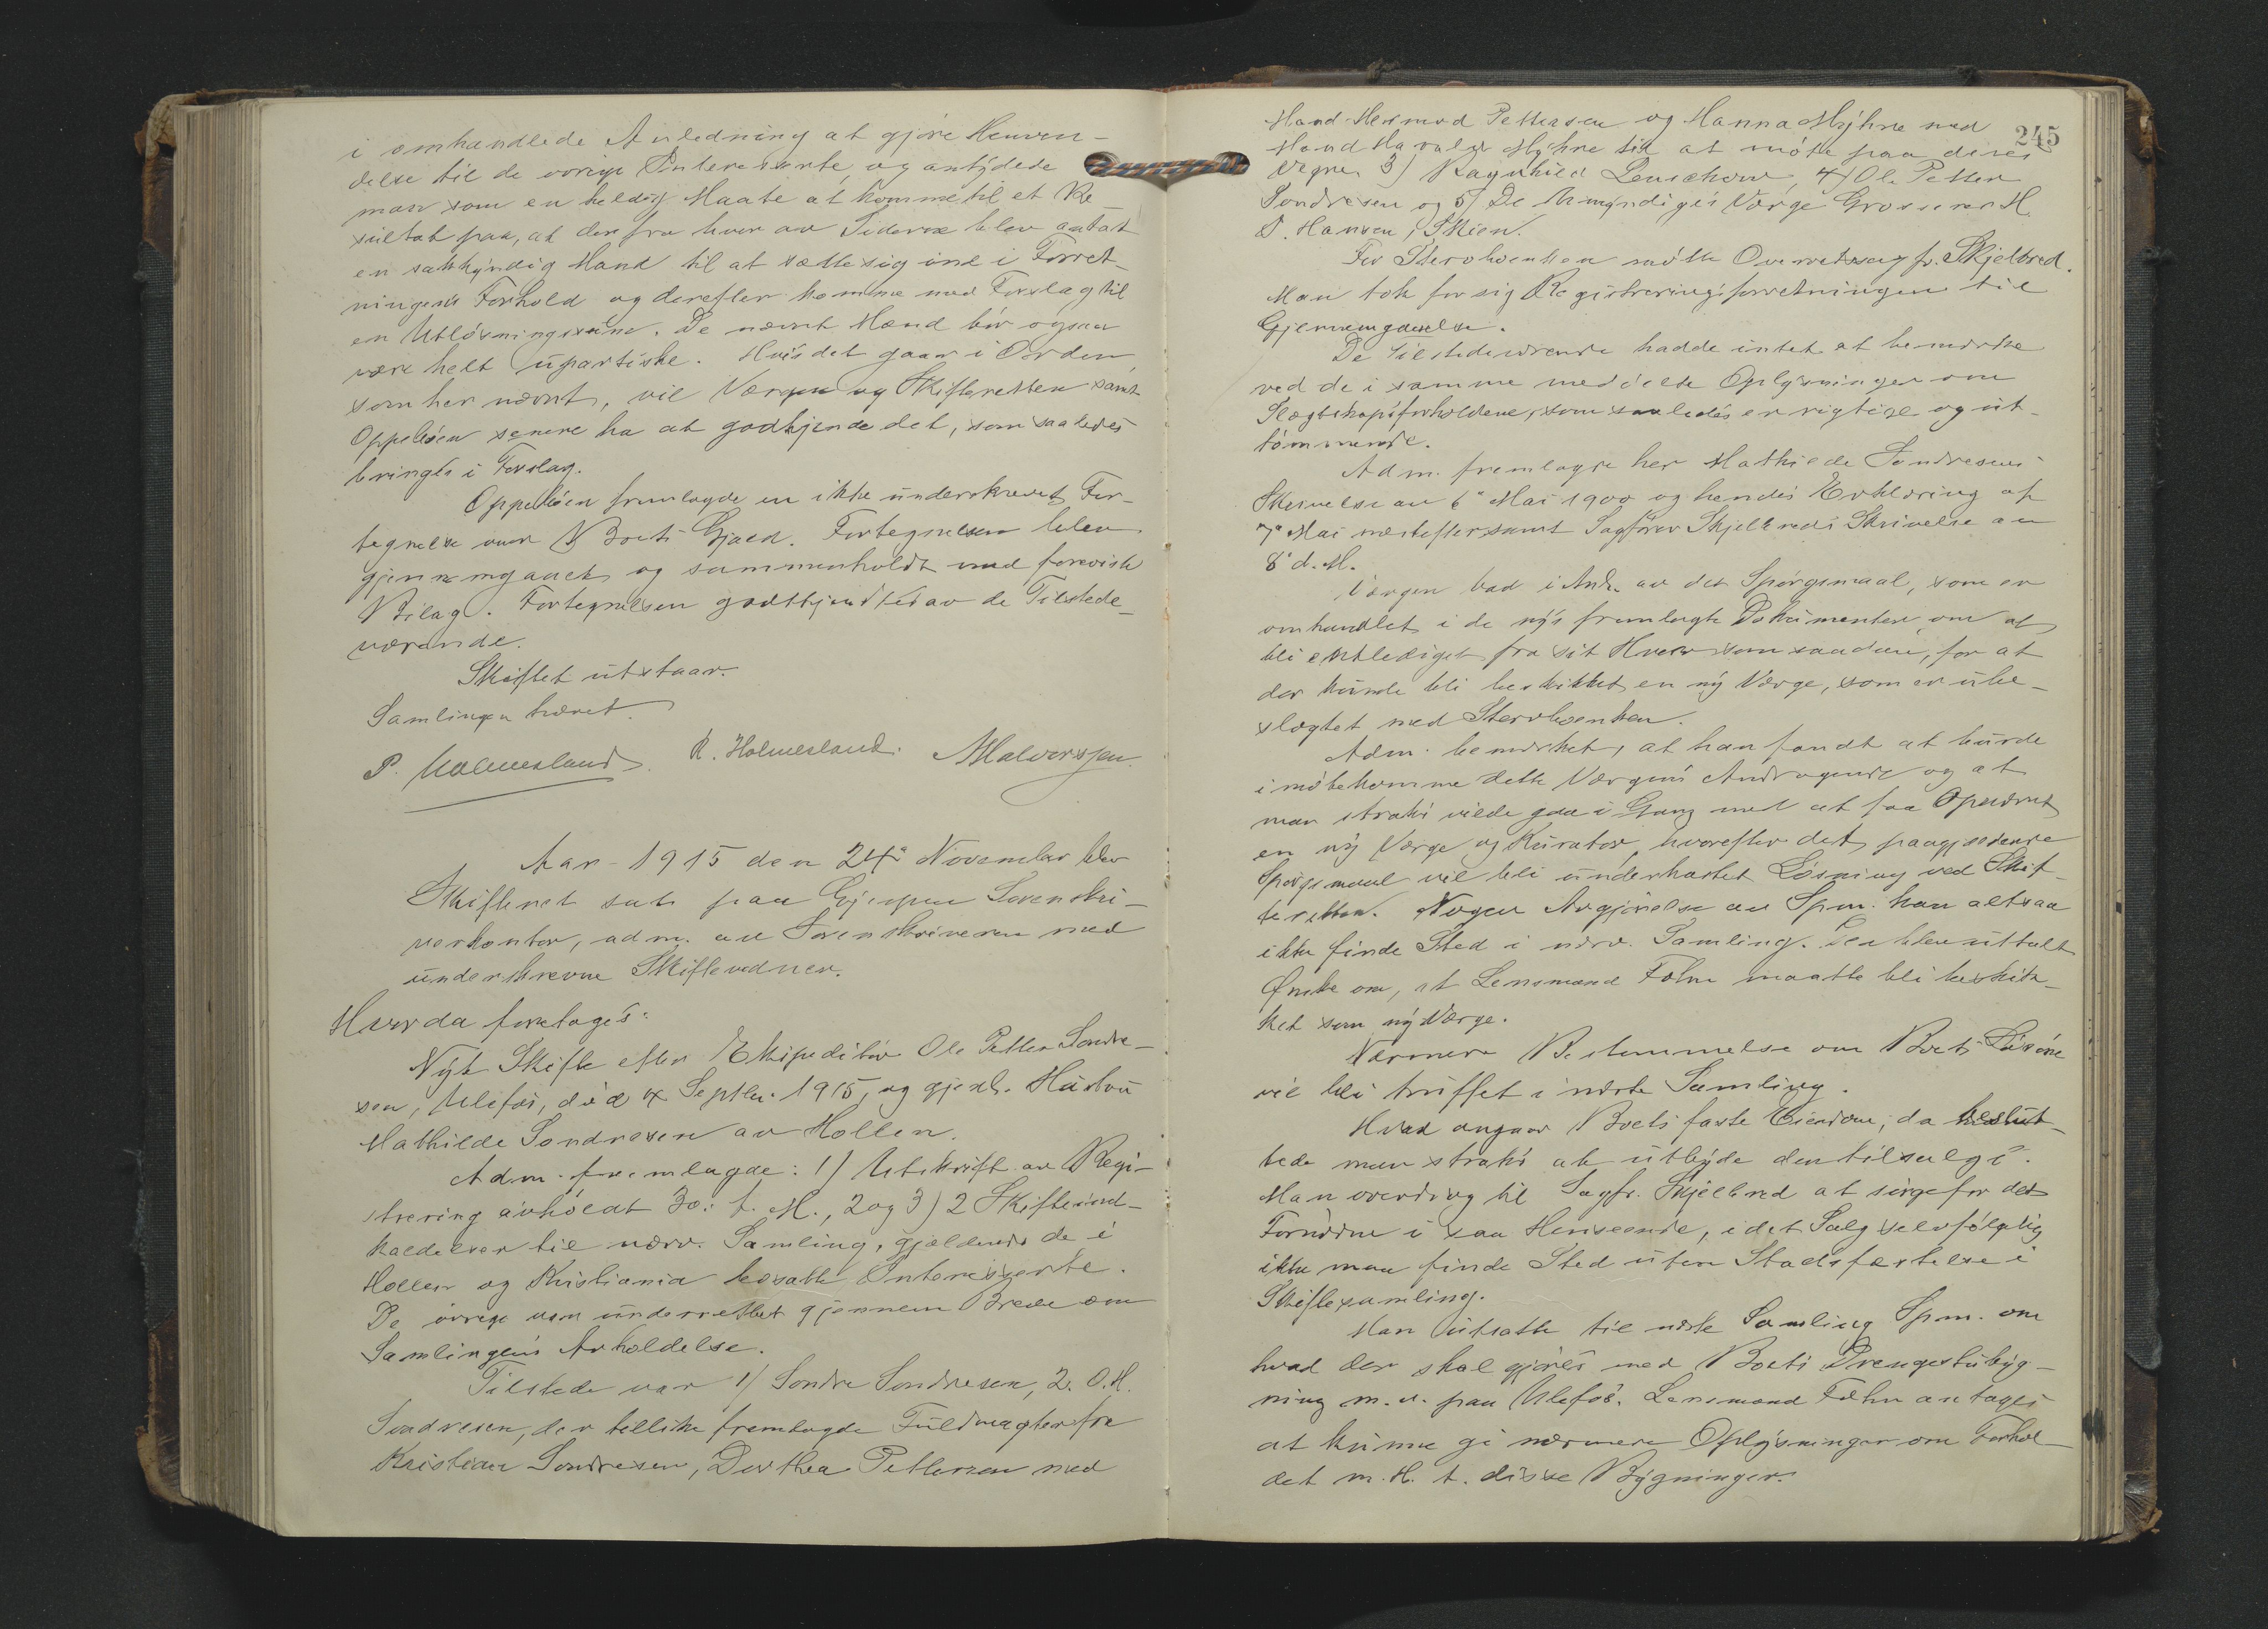 i omhandlede Anledning at gjøre Henven-
delse til de øvrige Interesserte, og antydede
man som en heldig Maate at komme til et Re-
sultat paa, at der fra hver av Siderne blev antat
en sakkyndig Mand til at sætte sig ind i Forret-
ningens Forhold og derefter komme med Forslag til
en Utløsningssum. De nævnt Mænd bør ogsaa
være helt upartiske. Hvis det gaar i Orden
som her nævnt, vil Vergen og Skifteretten samt
Oppebøen senere ha at godkjende det, som saaledes
bringes i Forslag.
fremlagde en ikke underskrevet For-
tegnelse over Boets Gjæld. Fortegnelsen blev
gjennemgaaet og sammenholdt med foreviste
Bilag. Fortegnelsen godkjendtes av de Tilstede-
værende.
Skiftet utstaar.
Samlingen hævet.
P. Holmesland. R. Holmesland. A Halvorsen.
Aar 1915 den 24de November blev
Skifteret sat paa Gjerpen Sorenskri-
verkontor, adm. av Sorenskriveren med
underskrevne Skiftevidner.
Hvorda foretoges:
Nyt Skifte efter Ekspeditør Ole Petter Sondre-
sen, Ulefos, død 4 Septbr. 1915, og gjenl. Hustru
Mathilde Sondresen av Hollen.
Adm. fremlagde: 1) Utskrift av Regi-
strering avholdt 30. f. M., 2 og 3) 2 Skifteind-
kaldelser til nærv. Samling, gjældende de i
Hollen og Kristiania bosatte Interesserte.
De øvrige var underrettet gjennem Breve om
Samlingens Avholdelse.
Tilstede var 1) Sondre Sondresen, 2. O. H.
Sondresen, der tillike fremlagde Fuldmagter fra
Kristian Sondresen, Dorthea Pettersen med
245
Mand Hermod Pettersen og Hanna Myhre med
Mand Harald Myhre til at møte paa deres
Vegne. 3) Ragnhild Leuschow, 4) Ole Petter
Sondresen og 5) De Umyndiges Værge Grosserer H.
P. Hansen, Skien.
For Stervboenken møtte Overretssagf. Skjelbred.
Man tok for sig Registreringsforretningen til
Gjennemgaaelse.
De Tilstedeværende hadde intet at bemærke
ved de i samme meddelte Oplysninger om
Slægtskapsforholdene, som saaledes er rigtige og ut-
tømmende.
Adm. fremlagde her Mathilde Sondresens
Skrivelse av 6te Mai 1900 og hendes Erklæring af
7de Mai næstefter samt Sagfører Skjelbreds Skrivelse av
8de d. M.
Værgen bad i Anl. av det Spørgsmaal, som er
omhandlet i de nys fremlagte Dokumenter om at
bli entlediget fra sit Hverv som saadan, for at
der kunde bli beskikket en ny Værge, som er ube-
slægtet med Stervboenken.
Adm. bemærket, at han fandt at burde
imøtekomme dette Værgens Andragende og at
man straks vilde gaa i Gang med at faa Opnævnt
en ny Værge og Kurator, hvorefter det paagjældende
Spørgsmaal vil bli underkastet Løsning ved Skif-
teretten. Nogen Avgjørelse av Spm. kan altsaa
ikke finde Sted i nærv. Samling. Der blev uttalt
Ønske om, at Lensmand Folm maatte bli beskik-
ket som ny Værge.
Nærmere Bestemmelse om Boets Løsøre
vil bli truffet i næste Samling.
Hvad angaar Boets faste Eiendom, da beslut-
tede man straks at utbyde den tilsalgs.
Man overdrog til Sagfr. Skjelbred at sørge for det
Fornødne i saa Henseende, idet Salg selvfølgelig
ikke maa finde Sted uten Stadfæstelse i
Skiftesamling.
Man utsatte til næste Samling Spm. om
hvad der skal gjøres med Boets Drengestubyg-
ning m. v. paa Ulefos. Lensmand Folm antages
at kunne gi nærmere Oplysninger om Forhol-
det m. H. t. disse Bygninger.